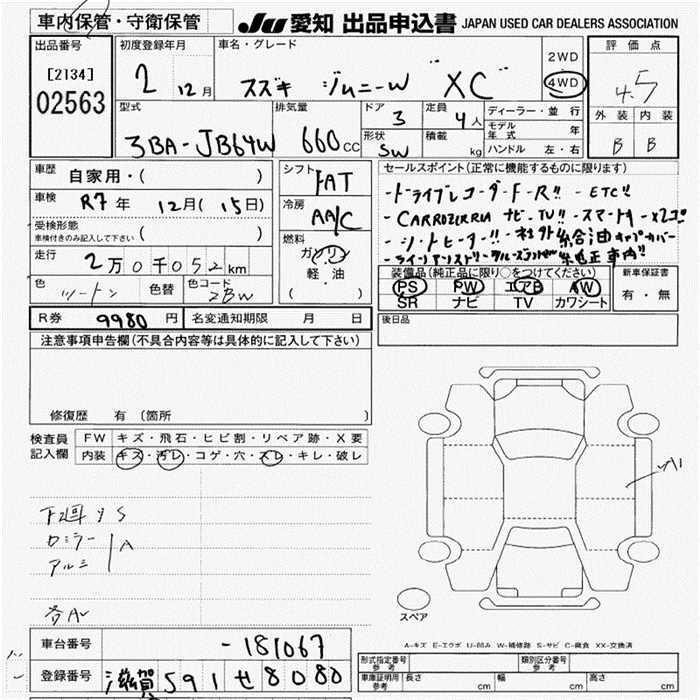 車内保管・守衛保管
JU 愛知 出品申込書 JAPAN USED CAR DEALERS ASSOCIATION
出品番号
[2134]
02563
初度登録年月
2 12月
車名・グレード
スズキ ジムニーW "XC"
2WD
4WD
評価点
4.5
外装 内装
B B
型式
3BA-JB64W
排気量
660CC
ドア
3
定員
4人
形状
SW
積載
kg
ディーラー・並行
モデル年式 年
ハンドル 左・右
車歴
自家用・( )
車検
R7年 12月(15日)
受検形態
車検付きのみ記入して下さい ( )
走行
2万0千052km
色
ツートン
色替
色コード
2BW
シフト
FAT
冷房
AAC
燃料
ガソリン
軽油
( )
セールスポイント(正常に機能するものに限ります)
-ドライブレコーダーF-R!! -ETC!!
-CARROZZERIA ナビ-TV!!
-シートヒーター!!
装備品(純正品に限り○をつけてください)
PS PW エアB AW
SR ナビ TV カワシート
新車保証書
有・無
R券 9980円
名変通知期限 月 日
後日品
注意事項申告欄(不具合内容等は具体的に記入して下さい)
修復歴 有(箇所
検査員記入欄
FW キズ・飛石・ヒビ割・リペア跡・X要
内装 キズ・汚レ・コゲ・穴・スレ・キレ・破レ
下廻りS
アルミ
A
各A
スペア
A-キズ E-エクボ U-凹み W-補修跡 S-サビ C-腐食 XX-交換済
車台番号
-181067
登録番号
滋賀 591 せ 8080
形式指定番号 参考
類別区分番号 参考
車庫証明用 参考
長さ cm
幅 cm
高さ cm